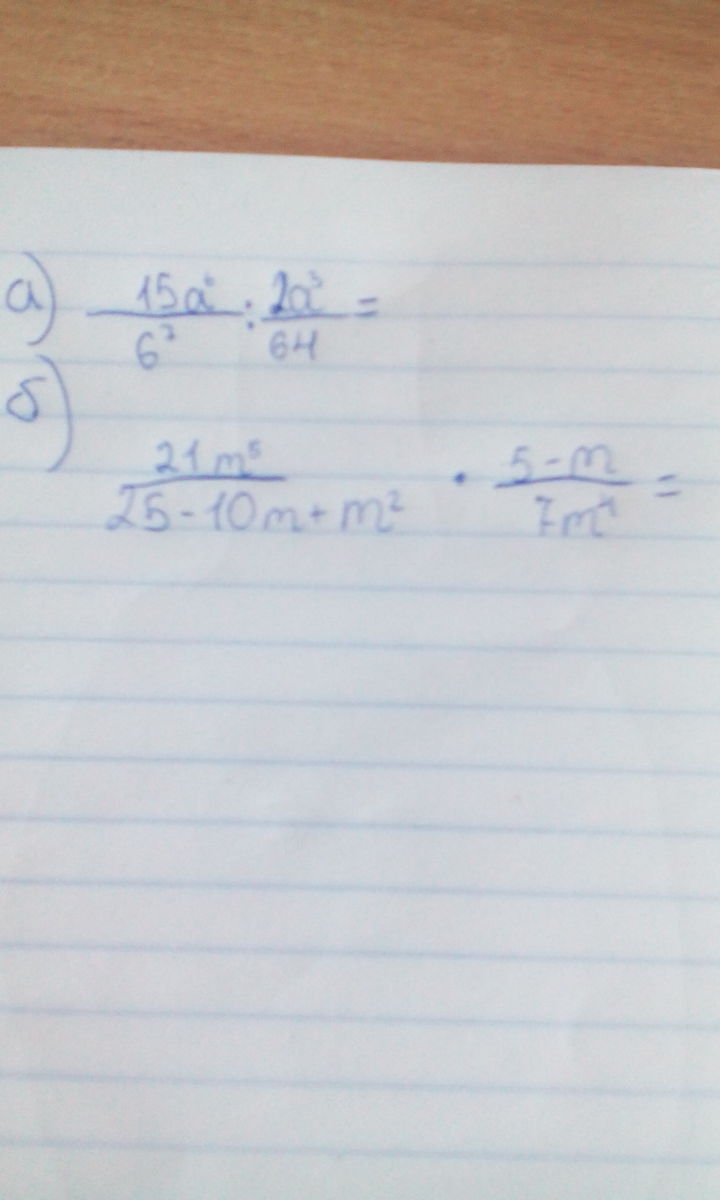 а) 15a⁶/6⁷ : 2a³/64 =
б)
21m⁵/25-10m+m² · 5-m/7m⁴ =